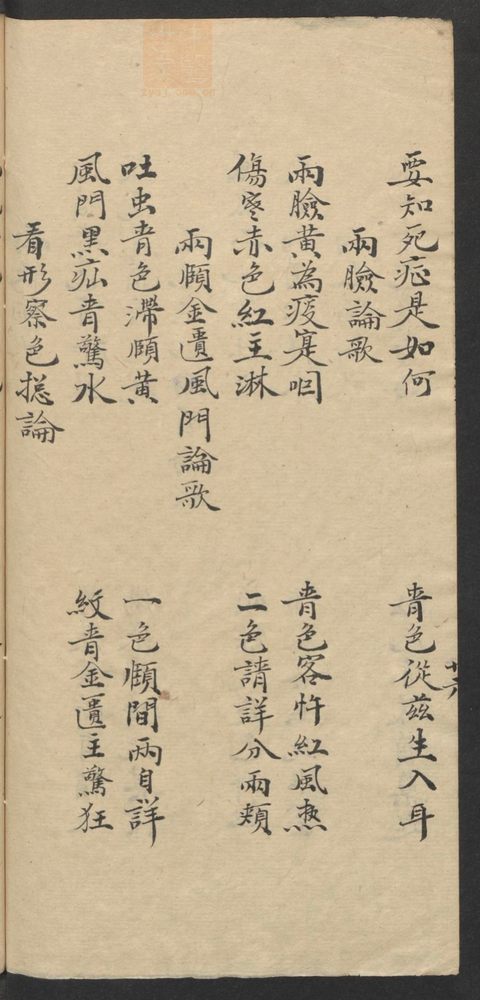 要知死症是如何　青色從茲生入耳
十六
兩臉論歌
兩臉黃為痰寔咽　青色客忤紅風熱
傷寒赤色紅主淋　二色請詳分兩頰
兩頤金匱風門論歌
吐虫青色滯頤黃　一色頤間兩自詳
風門黑疝青驚水　紋青金匱主驚狂
看形察色揔論